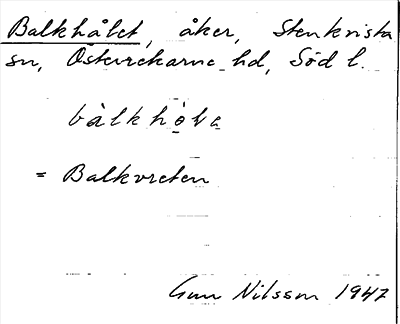 Balkhålet, åker, Stenkvista
sn, Österrekarne hd, Söd l.
bàlkhòlɛ
= Balkvreten
Gun Nilsson 1947